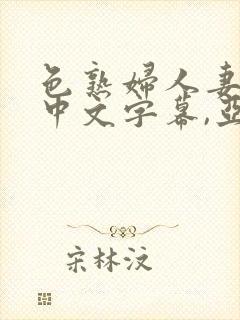 色熟婦人妻
中文字幕,亞
宋林汶